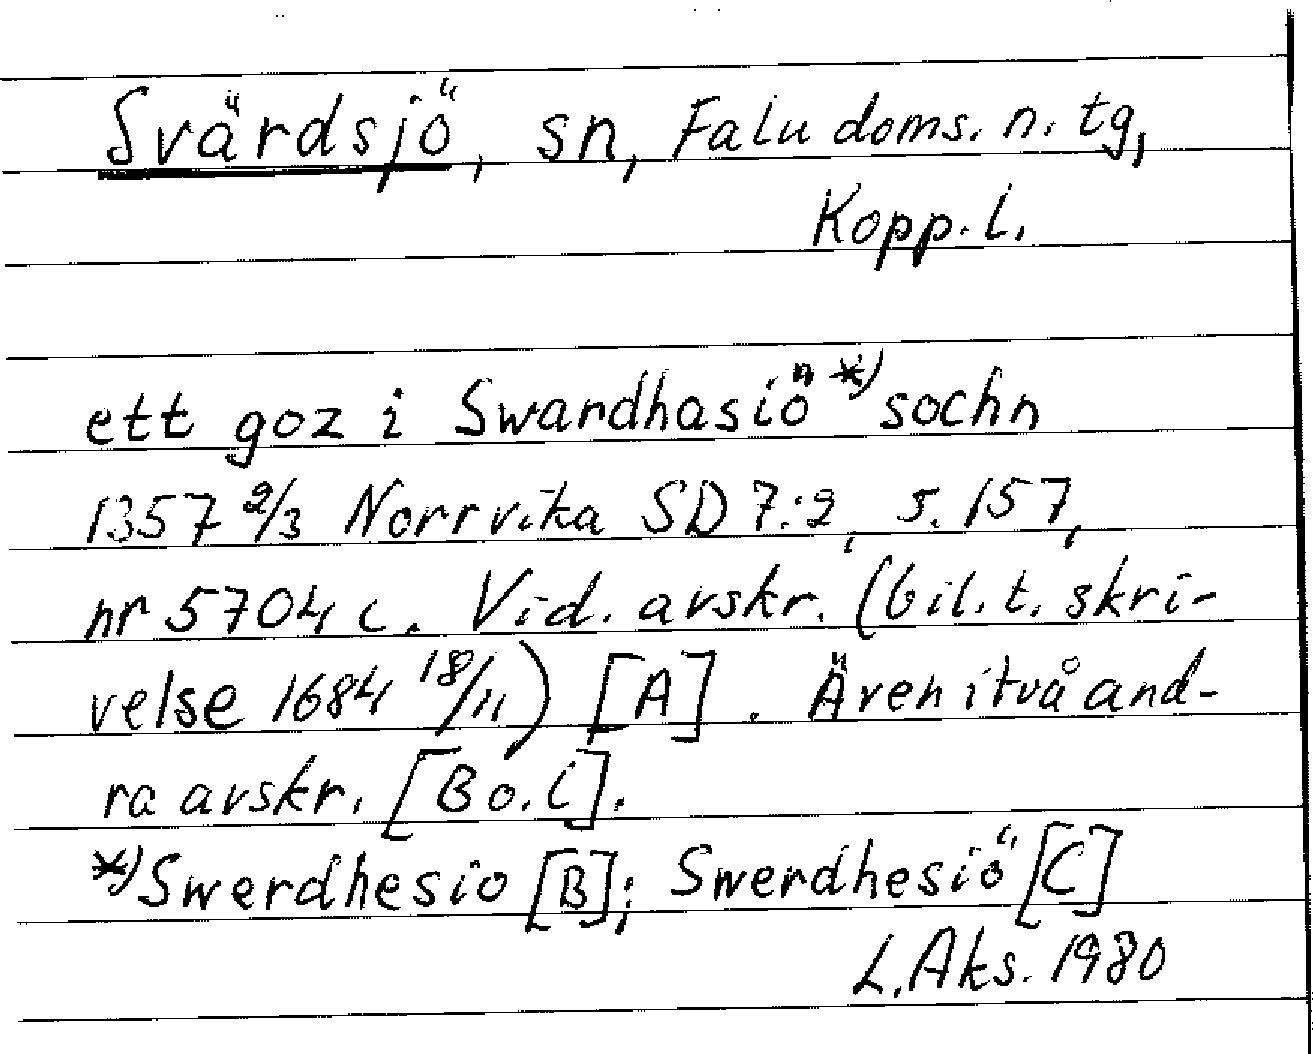 Svärdsjö, sn, Falu doms. n. tg,
Kopp. l.
ett goz i Swardhasiö *) sochn
1357 2/3 Norrvika SD 7:2, s. 157,
nr 5704 c. Vid. avskr. (bil. t. skri-
velse 1684 18/11) [A]. Även i två and-
ra avskr. [B o. C].
*) Swerdhesio [B]; Swerdhesiö [C]
L. Aks. 1980